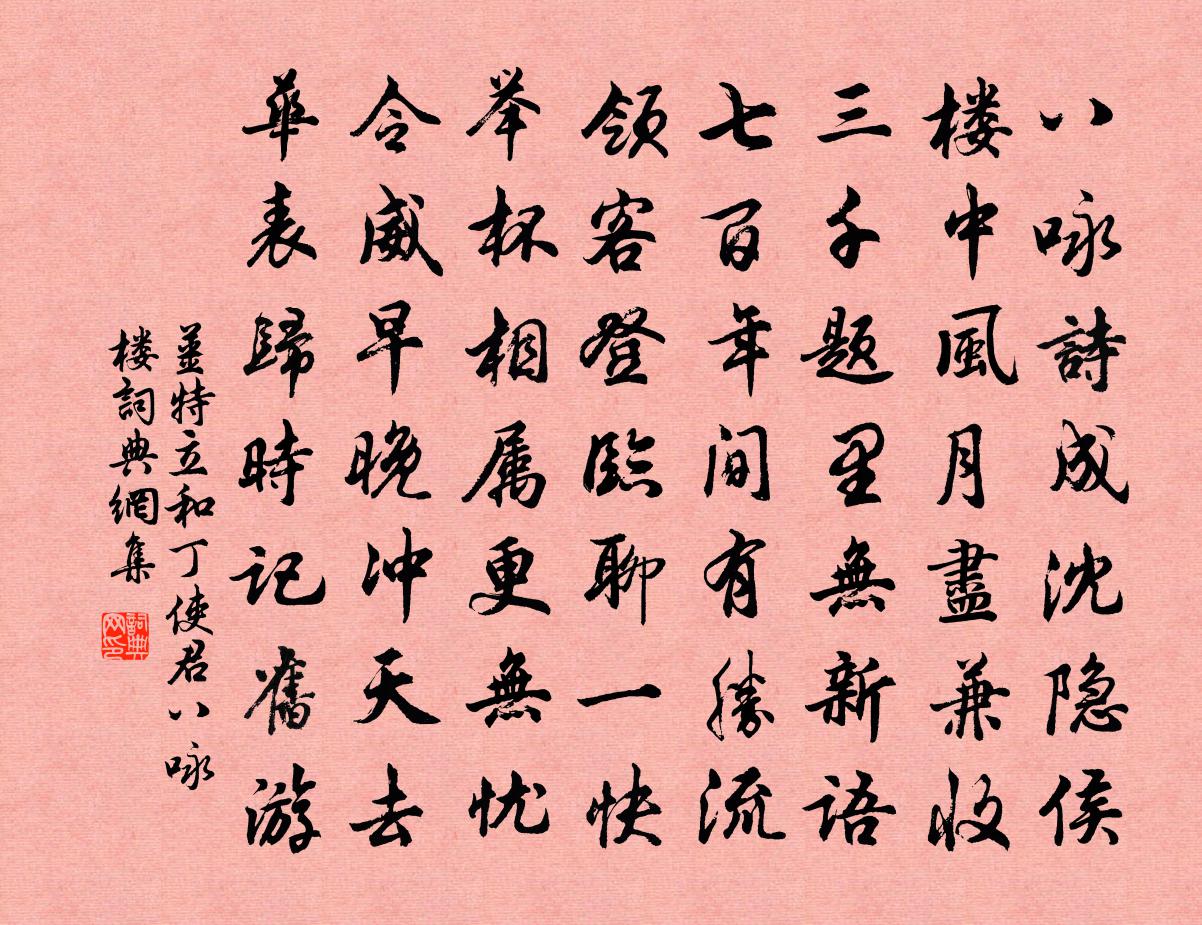 八咏詩成沈隐侯
楼中風月盡兼收
三千题里無新语
七百年间有勝流
领客登臨聊一快
举杯相属更無忧
令威早晚冲天去
華表歸時记舊游
姜特立和丁使君八咏
楼詞典網集
詞典网印